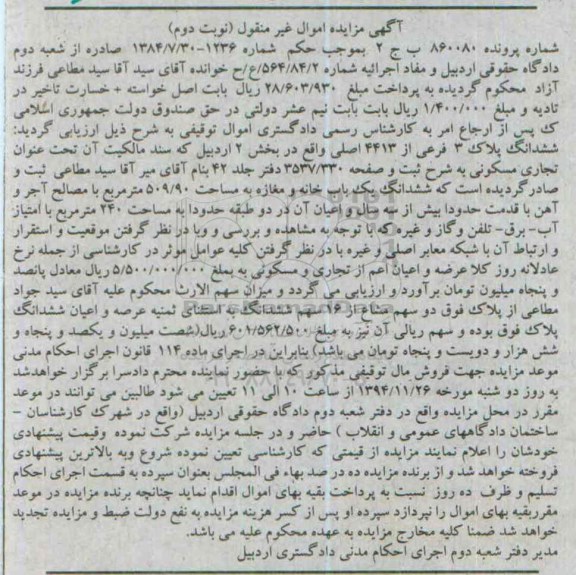 آگهی مزایده اموال غیر منقول (نوبت دوم)
شماره پرونده ۸۶۰۰۸۰ ب ج ۲ بموجب حکم شماره ۱۲۳۶-۱۳۸۴/۷/۳۰ صادره از شعبه دوم
دادگاه حقوقی اردبیل و مفاد اجرائیه شماره ۵۶۴/۸۴/۲/ع/ح خوانده آقای سید آقا سید مطاعی فرزند
آزاد محکوم گردیده به پرداخت مبلغ ۲۸/۶۰۳/۹۳۰ ریال بابت اصل خواسته + خسارت تاخیر در
تادیه و مبلغ ۱/۴۰۰/۰۰۰ ریال بابت بابت نیم عشر دولتی در حق صندوق دولت جمهوری اسلامی
ک پس از ارجاع امر به کارشناس رسمی دادگستری اموال توقیفی به شرح ذیل ارزیابی گردید:
ششدانگ پلاک ۳ فرعی از ۴۴۱۳ اصلی واقع در بخش ۲ اردبیل که سند مالکیت آن تحت عنوان
تجاری مسکونی به شرح ثبت و صفحه ۳۵۳۷/۳۳۰ دفتر جلد ۴۲ بنام آقای میر آقا سید مطاعی ثبت و
صادرگردیده است که ششدانگ یک باب خانه و مغازه به مساحت ۵۰۹/۹۰ مترمربع با مصالح آجر و
آهن با قدمت حدودا بیش از سه سال و اعیان آن در دو طبقه حدودا به مساحت ۲۴۰ مترمربع با امتیاز
آب- برق- تلفن وگاز و غیره که با توجه به مشاهده و بررسی و وبا در نظر گرفتن موقعیت و استقرار
و ارتباط آن با شبکه معابر اصلی و غیره با در نظر گرفتن کلیه عوامل موثر در کارشناسی از جمله نرخ
عادلانه روز کلا عرصه و اعیان اعم از تجاری و مسکونی به بمبلغ ۵/۵۰۰/۰۰۰/۰۰۰ ریال معادل پانصد
و پنجاه میلیون تومان برآورد و ارزیابی می گردد و میزان سهم الارث محکوم علیه آقای سید جواد
مطاعی از پلاک فوق دو سهم مشاع از ۱۶ سهم ششدانگ به استثنای ثمنیه عرصه و اعیان ششدانگ
پلاک فوق بوده و سهم ریالی آن نیز به مبلغ ۶۰۱/۵۶۲/۵۰۰ ریال(شصت میلیون و یکصد و پنجاه و
شش هزار و دویست و پنجاه تومان می باشد) بنابراین در اجرای ماده ۱۱۴ قانون اجرای احکام مدنی
موعد مزایده جهت فروش مال توقیفی مذکور که با حضور نماینده محترم دادسرا برگزار خواهدشد
به روز دو شنبه مورخه ۱۳۹۴/۱۱/۲۶ از ساعت ۱۰ الی ۱۱ تعیین می شود طالبین می توانند در موعد
مقرر در محل مزایده واقع در دفتر شعبه دوم دادگاه حقوقی اردبیل (واقع در شهرک کارشناسان -
ساختمان دادگاههای عمومی و انقلاب ) حاضر و در جلسه مزایده شرکت نموده وقیمت پیشنهادی
خودشان را اعلام نمایند مزایده از قیمتی که کارشناسی تعیین نموده شروع وبه بالاترین پیشنهادی
فروخته خواهد شد و از برنده مزایده ده در صد بهاء فی المجلس بعنوان سپرده به قسمت اجرای احکام
تسلیم و ظرف ده روز نسبت به پرداخت بقیه بهای اموال اقدام نماید چنانچه برنده مزایده در موعد
مقرربقیه بهای اموال را نپردازد سپرده او پس از کسر هزینه مزایده به نفع دولت ضبط و مزایده تجدید
خواهد شد ضمنا کلیه مخارج مزایده به عهده محکوم علیه می باشد.
مدیر دفتر شعبه دوم اجرای احکام مدنی دادگستری اردبیل